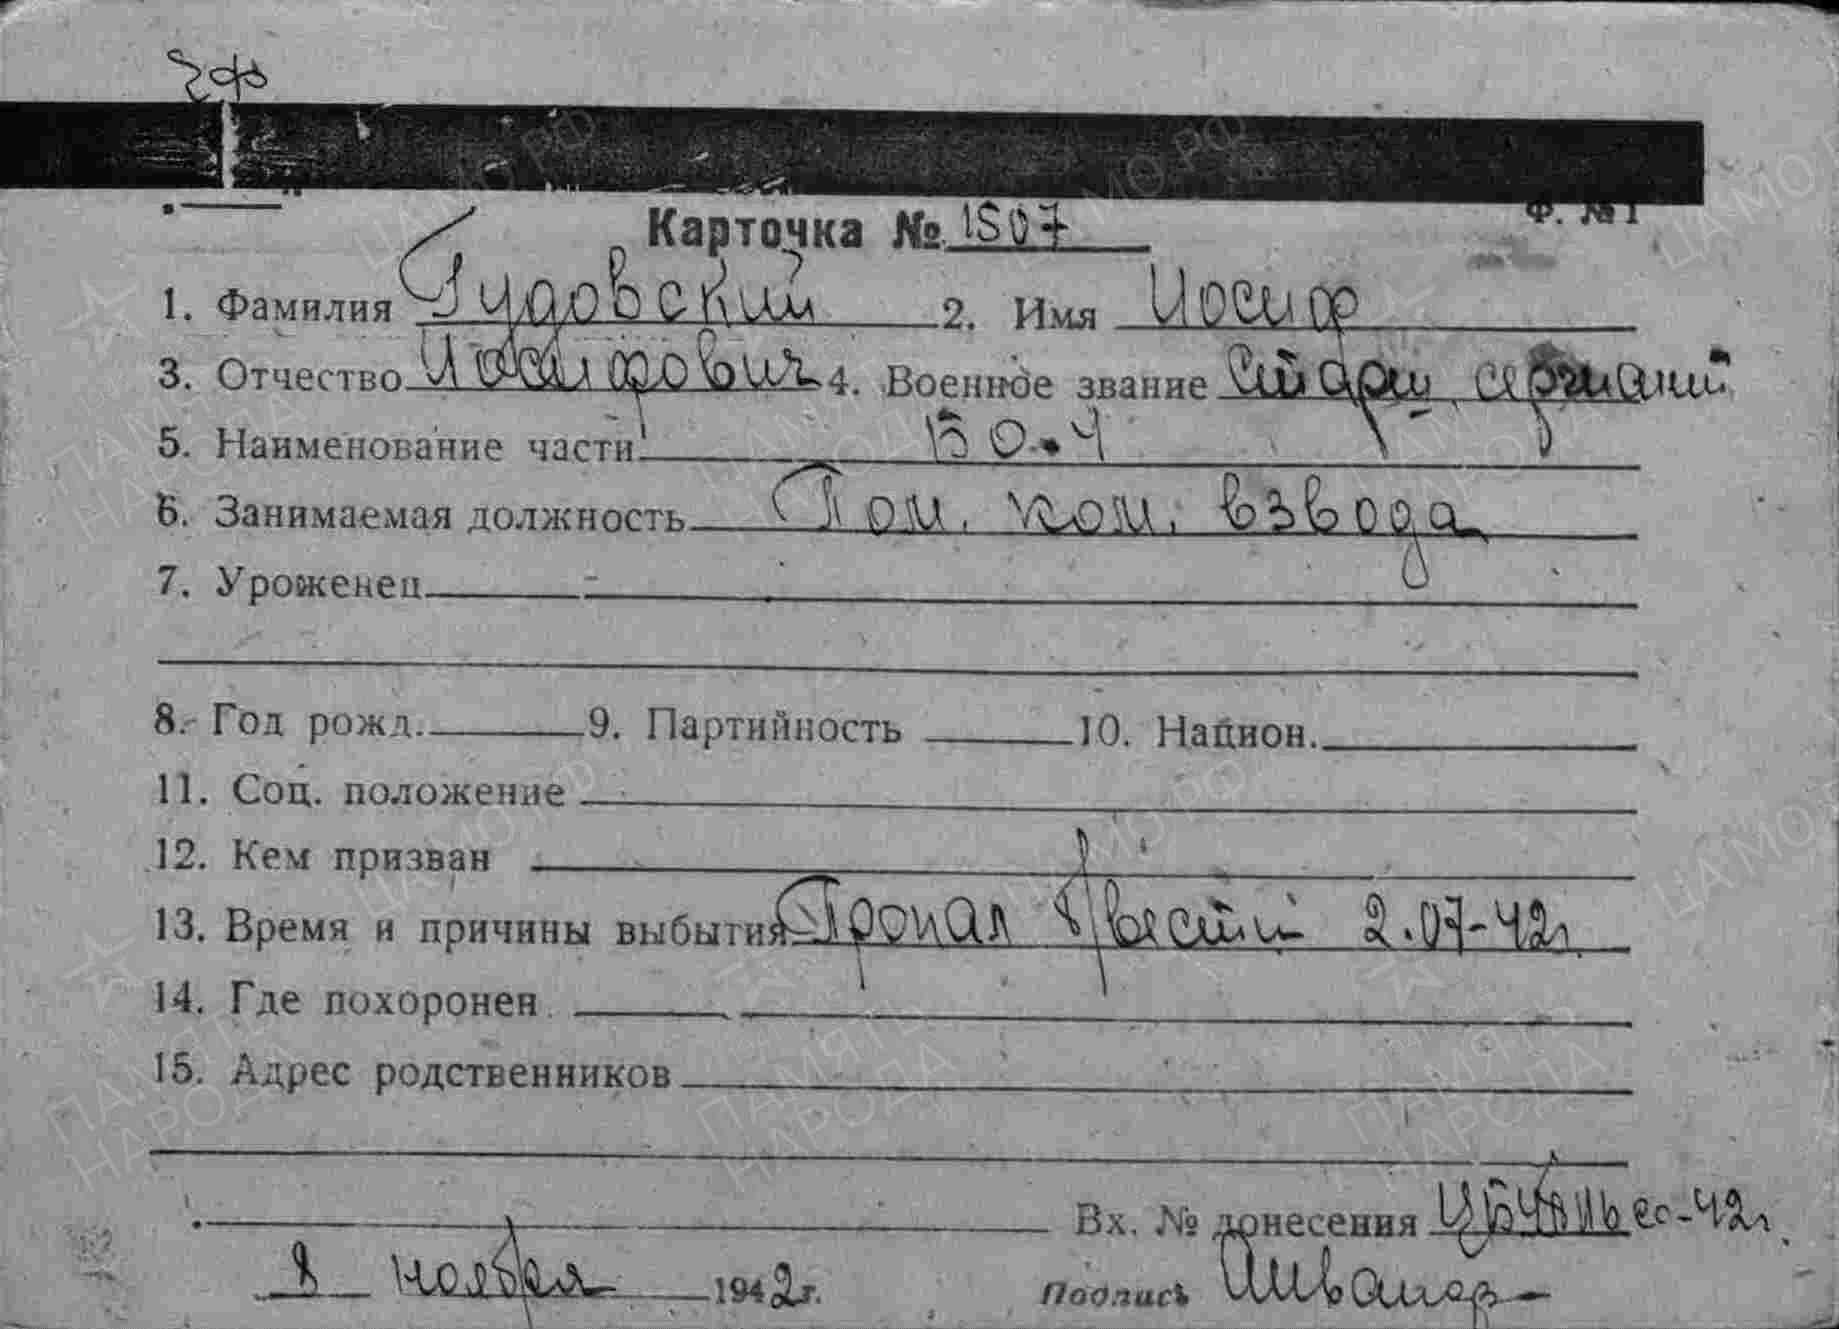 Ф. № 1
Карточка № 1507
1. Фамилия Гудовский 2. Имя Иосиф
3. Отчество Иосифович 4. Военное звание Старш. сержант
5. Наименование части
6. Занимаемая должность Пом. ком. взвода
7. Уроженец
8. Год рожд. 9. Партийность 10. Национ.
11. Соц. положение
12. Кем призван
13. Время и причины выбытия Пропал б/вести 2.07-42г
14. Где похоронен
15. Адрес родственников
Вх. № донесения -42г.
8 ноября 1942г. Подпись
ЦАМО.РФ
ПАМЯТЬ
НАРОДА